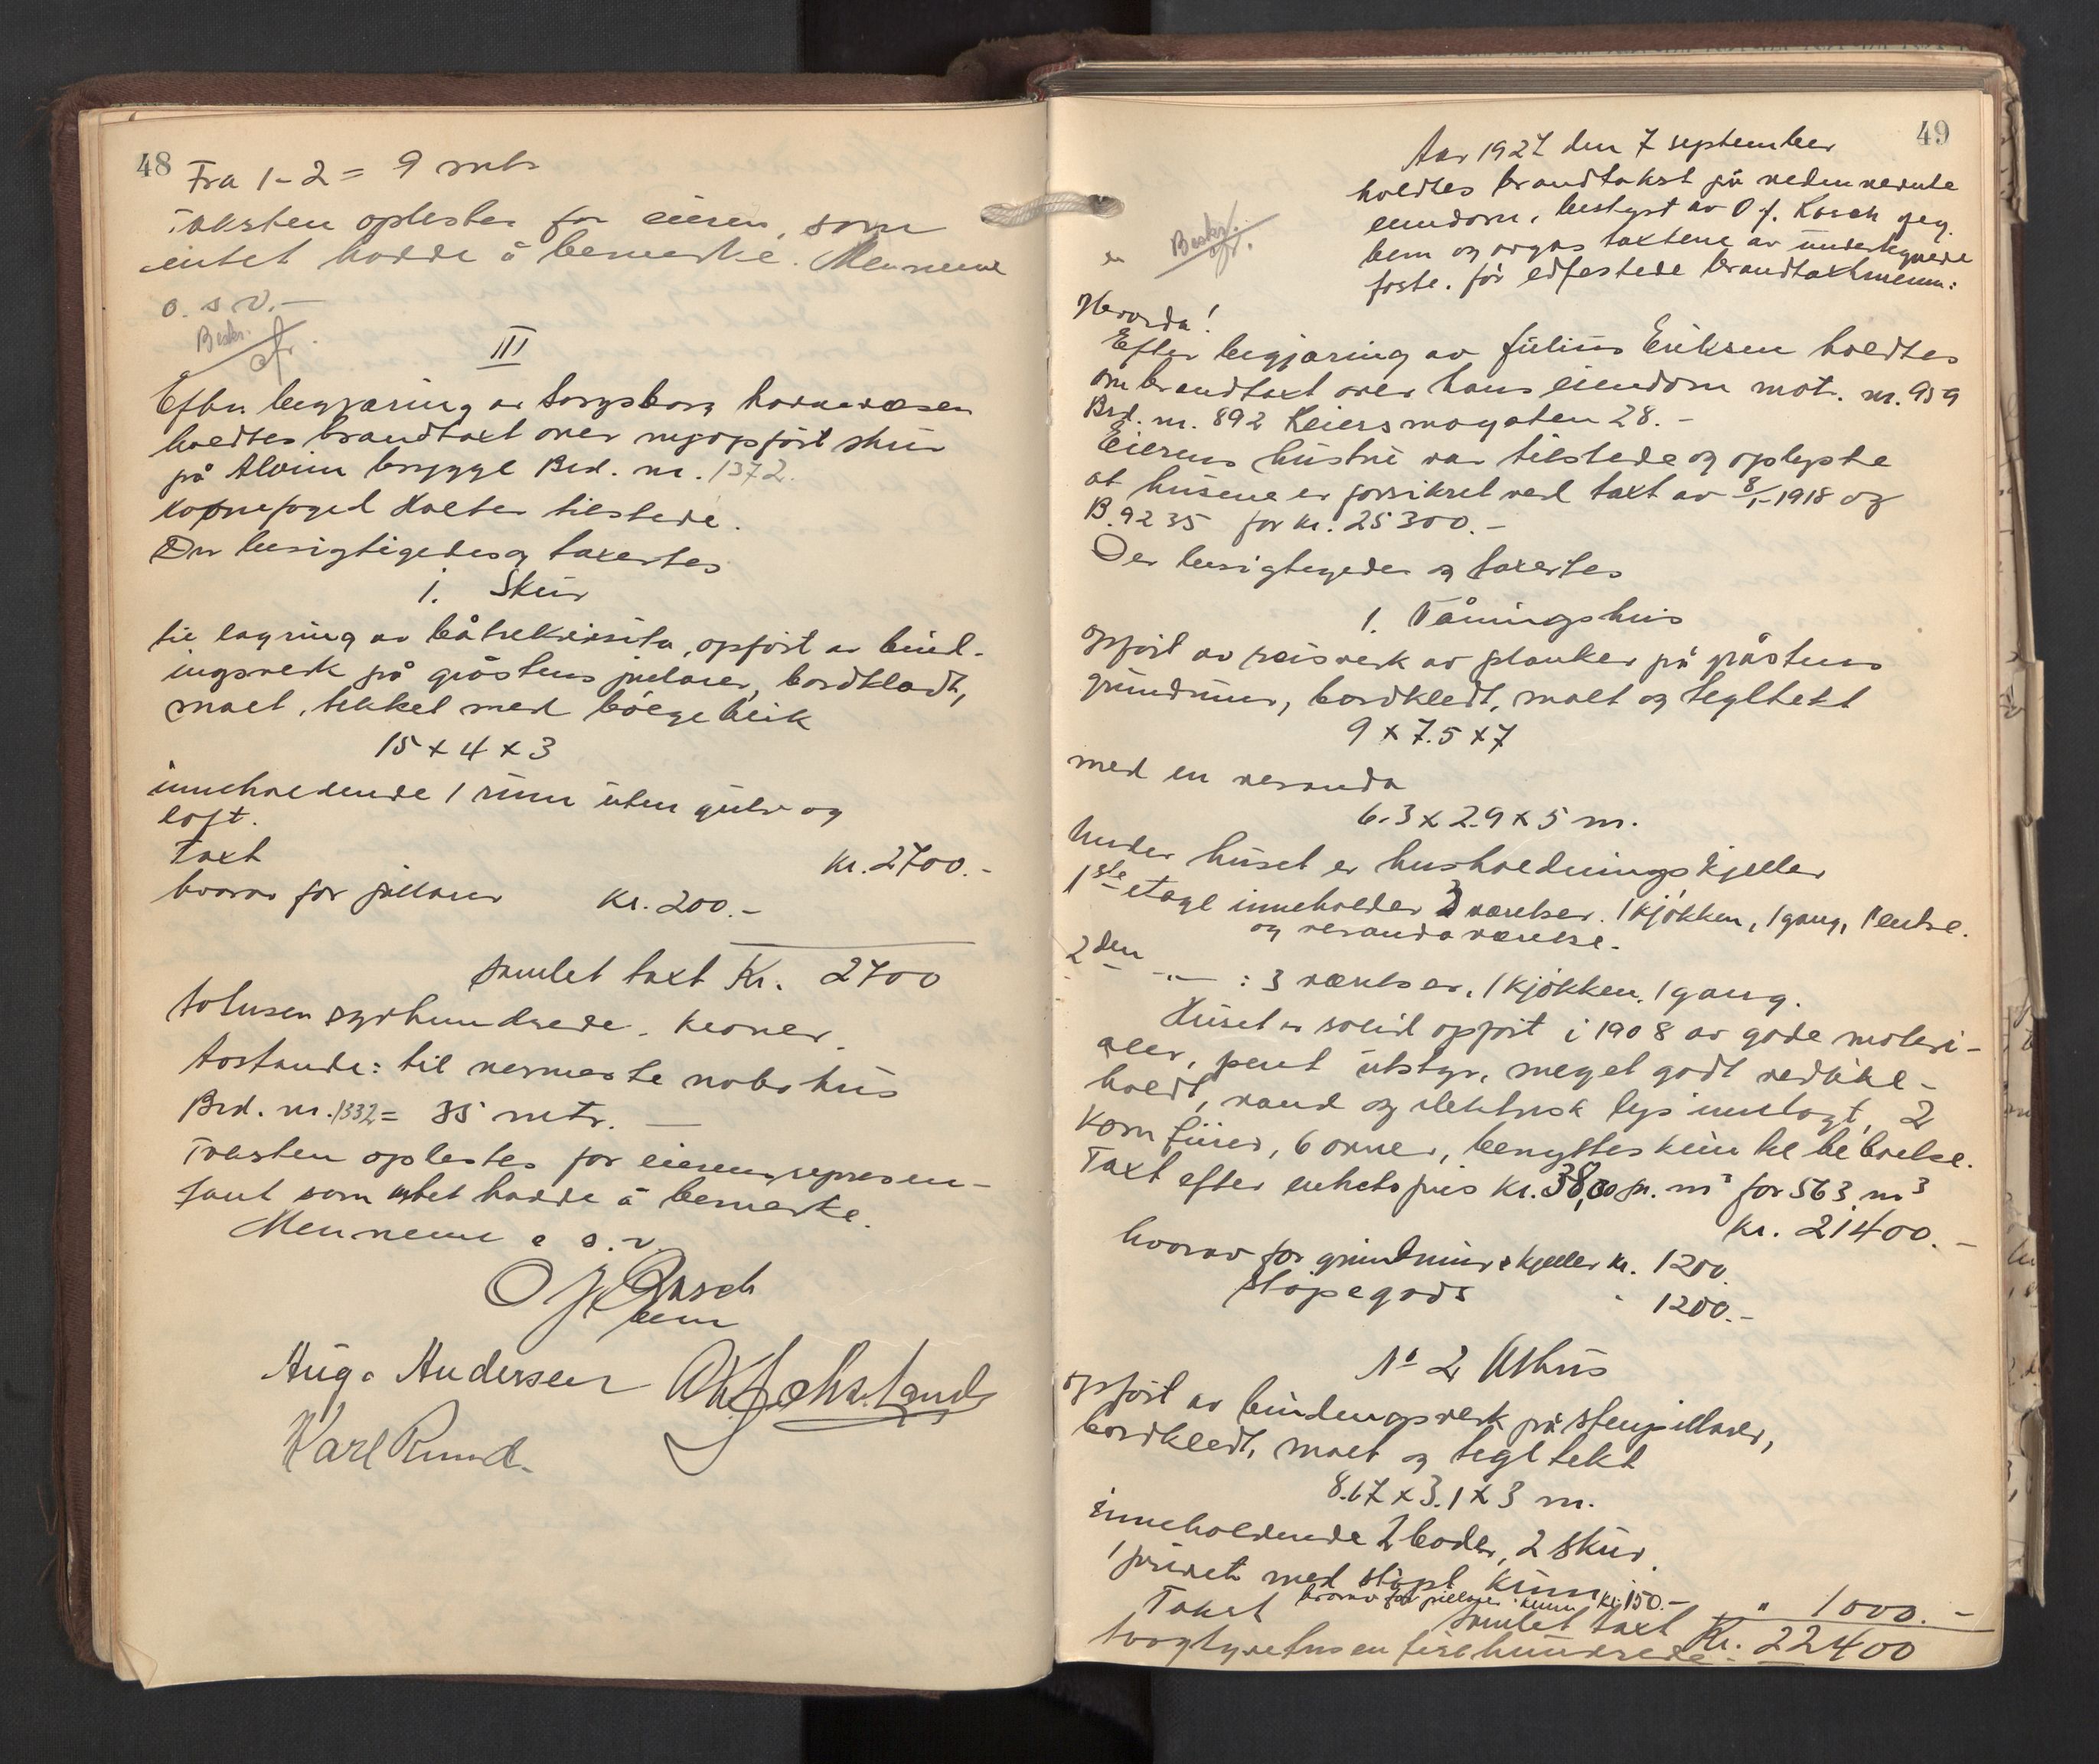 48
Fra 1-2 = 9 mtr
Taksten oplestes for eieren, som
intet hadde å bemerke. Mennene
o. s. v. —
Beskr.
III
Efter begjæring av Sarpsborg havnevæsen
holdtes brandtaxt over nyopført skur
på Alvim brygge Brd. nr. 1372.
Havnefoged Holter tilstede.
Der besigtigedes og taxertes
1. Skur
til lagring av båtrekvisita, opført av bind-
ingsverk på gråstens pilarer, bordkledt,
malt, tekket med bølgeblik
15 x 4 x 3
inneholdende 1 rum uten gulv og
loft.
Taxt kr. 2700.-
hvorav for pillarer kr. 200.-
Samlet taxt Kr. 2700
totusen syvhundrede kroner.
Avstande: til nermeste nabohus
Brd. nr. 1332 = 35 mtr. —
Taksten oplestes for eierens represen-
tant som intet hadde å bemerke.
Mennene o. s. v.
Hugo Andersen
Karl Ruud.
49
Aar 1927 den 7 september
holdtes brandtakst på nedennevnte
eiendom, bestyrt av O. J. Rasch
bem og avgas taxtene av undertegnede
faste. for edfestede brandtaxtmenn:
Beskr.
Hvorda!
Efter begjæring av Julius Eriksen holdtes
ombrandtaxt over hans eiendom matr. nr. 959
Brd. nr. 892 Keiersmogaten 28. -
Eierens hustru var tilstede og oplyste
at husene er forsikret ved taxt av 8/1-1918 og
B. 9235 for kr. 25300.-
Der besigtigedes og taxertes
1. Våningshus
opført av reisverk av planker på gråstens
grundmur, bordkledt, malt og tegltekt
9 x 7.5 x 7
med en veranda
6.3 x 2.9 x 5 m.
Under huset er husholdningskjeller
1ste etage inneholder 3 værelser. 1 kjøkken, 1 gang, 1 entre.
og verandaværelse.
2den —"— : 3 værelser, 1 kjøkken, 1 gang.
Huset er solid opført i 1908 av gode materi-
aler, pent utstyr, meget godt vedlike-
holdt, vand og elektrisk lys innlagt, 2
komfurer, 6 ovner, benyttes kun til beboelse.
Taxt efter enhetspris kr. 38,00 pr. m³ for 563 m³
kr. 21400.-
hvorav for grundmur & kjeller kr. 1200.
støpegods " 1200.-
No 2 Uthus
opført av bindingsverk på stenpillarer,
bordkledt, malt og tegltekt
8.67 x 3.1 x 3 m.
inneholdende 2 boder, 2 skur,
1 privet med støpt kum
hvorav for pillarer & kum kr. 150.-
Takst " 1000.-
Samlet taxt Kr. 22400
toogtyvetusen firehundrede